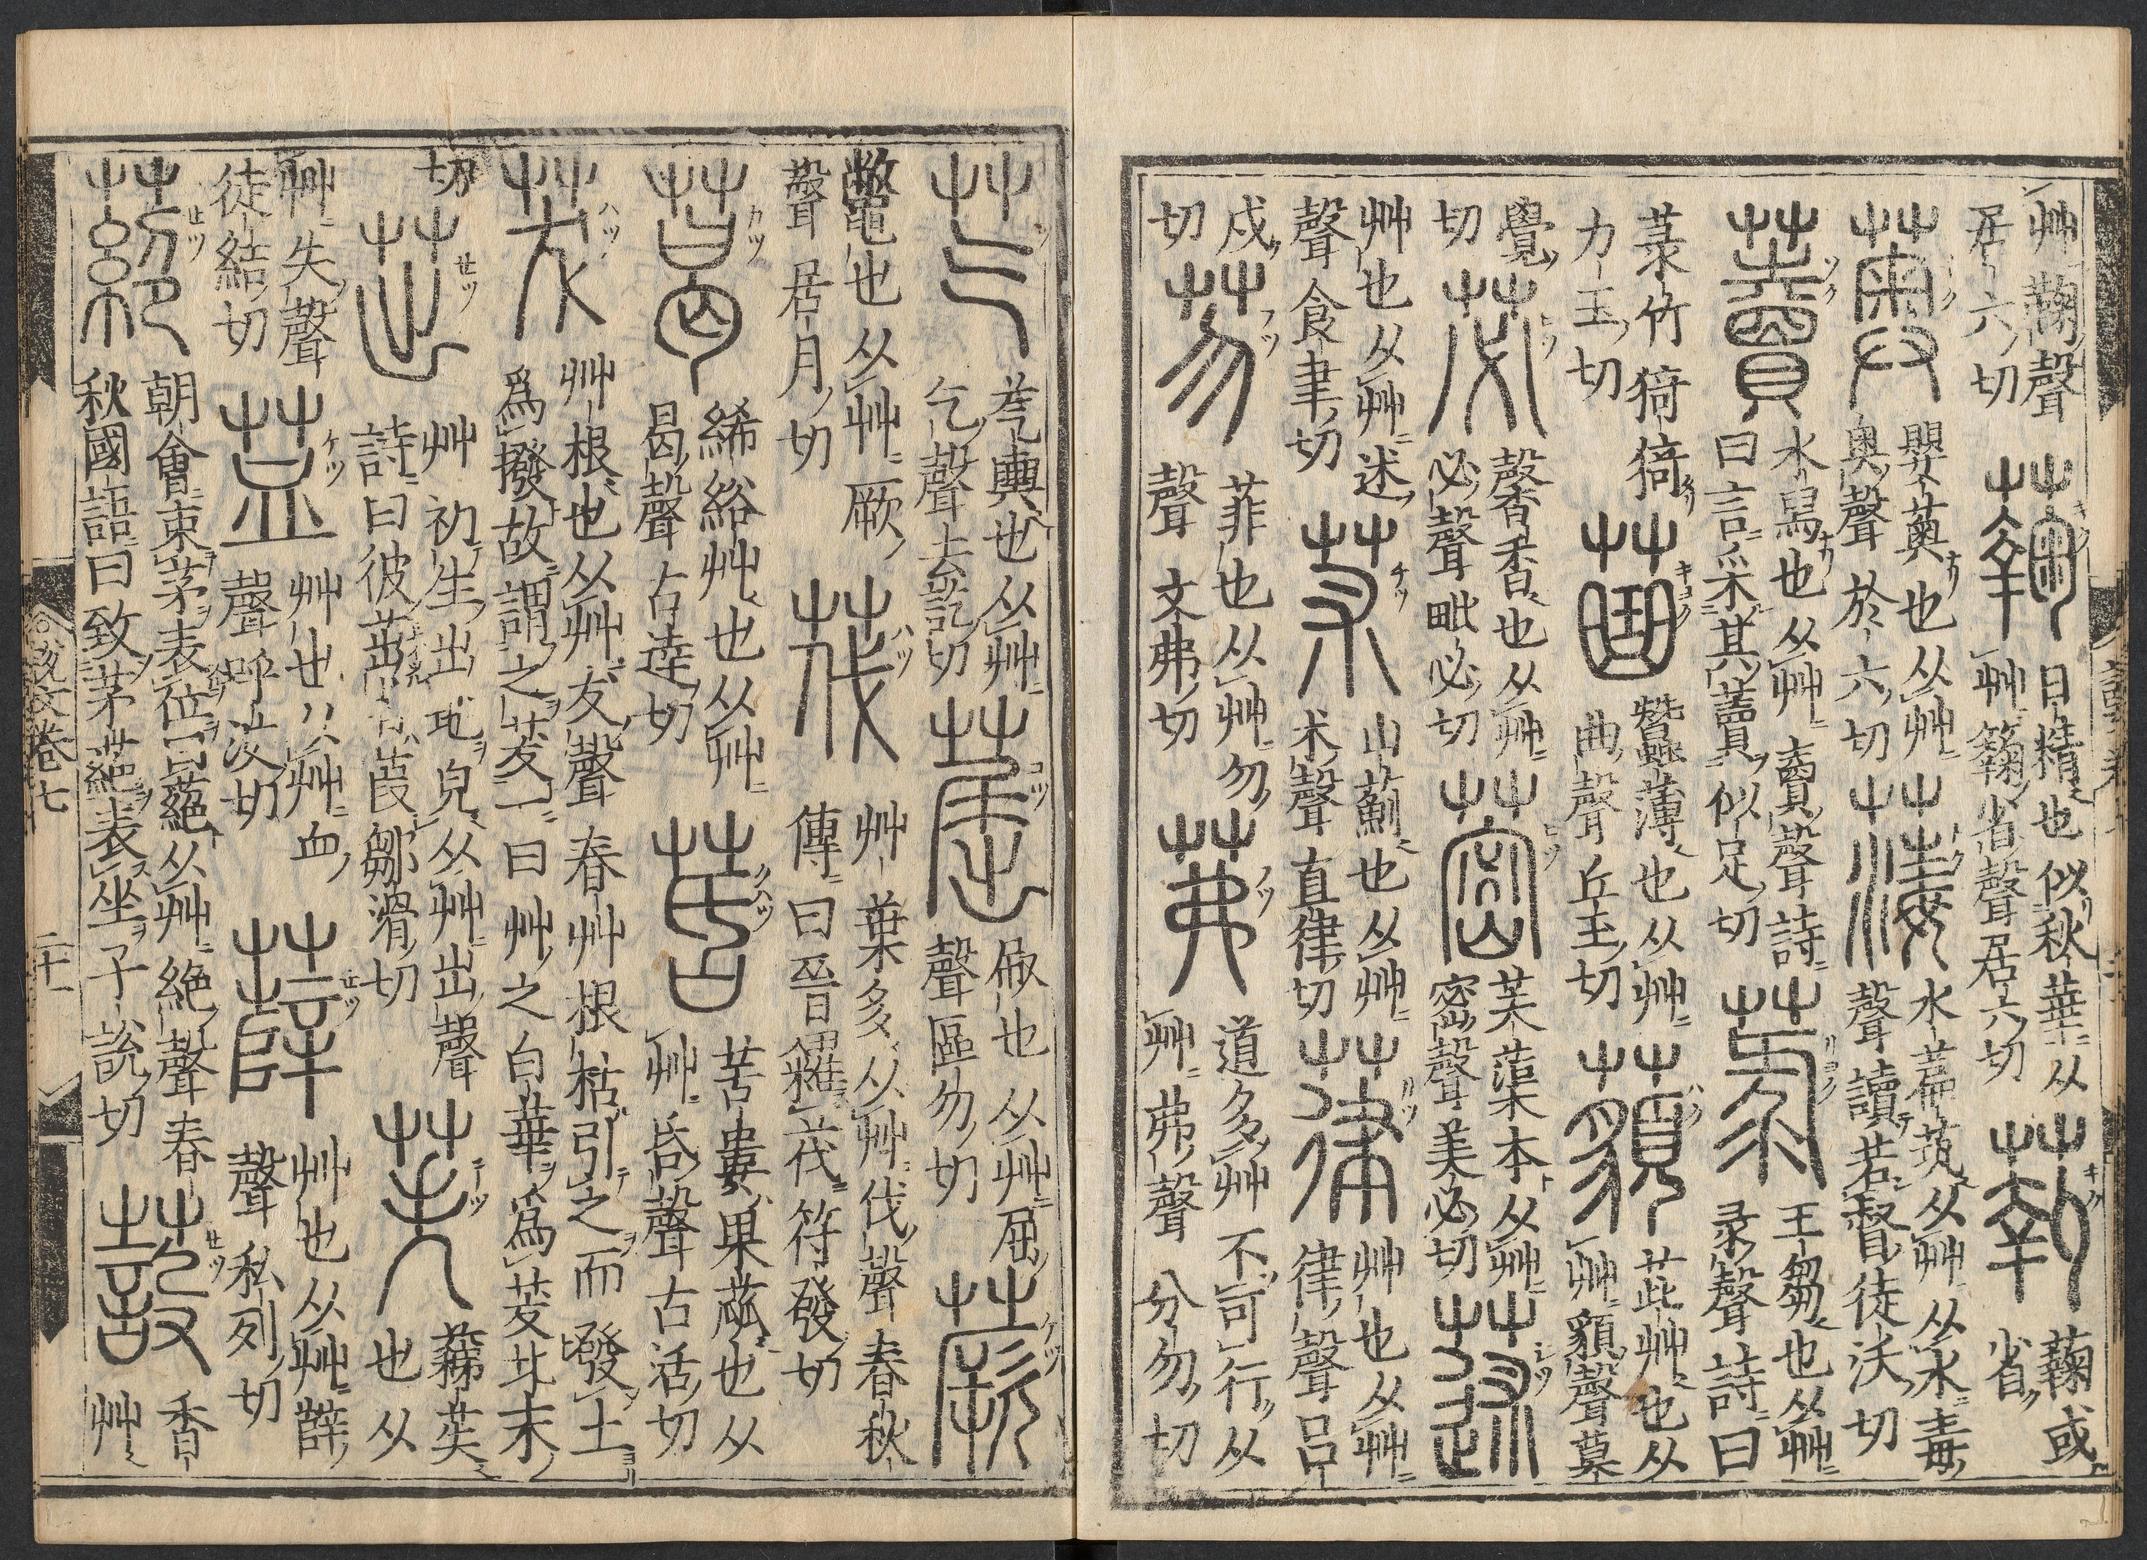 艸鞠聲居六切 蘜 日精也似秋華从艸𥷚省聲居六切 𦽅 蘜或省
薁 嬰薁也从艸奥聲於六切 𦸔 水萹茿从艸从水毒聲讀若督徒沃切
藚 水舄也从艸賣聲詩曰言采其藚似足切 菉 王芻也从艸录聲詩曰
菉竹猗猗力玉切 苗 蠶薄也从艸曲聲丘玉切 藐 茈艸也从艸貌聲莫
覺切 苾 馨香也从艸必聲毗必切 蔤 芙蕖本从艸密聲美必切 蒁
艸也从艸述聲食聿切 𦬸 山薊也从艸术聲直律切 葎 艸也从艸律聲呂
戌切 芴 菲也从艸勿聲文弗切 茀 道多艸不可行从艸弗聲分勿切
芞 芞輿也从艸乞聲去訖切 䓛 㕞也从艸屈聲區勿切 蕨
鼈也从艸厥聲居月切 茷 艸葉多从艸伐聲春秋傳曰晉糴茷符發切
葛 絺綌艸也从艸曷聲古達切 𦯄 苦婁果蓏也从艸𠯑聲古活切
茇 艸根也从艸犮聲春艸根枯引之而發土爲撥故謂之茇一曰艸之白華爲茇北末
切 茁 艸初生出地皃从艸出聲詩曰彼茁者葭鄒滑切 苵 蕛苵也从
艸失聲徒結切 䒸 艸也从艸血聲呼決切 薛 艸也从艸辥聲私列切
蕝 朝會束茅表位曰蕝从艸絕聲春秋國語曰致茅蕝表坐子說切 蔎 香艸
說文卷七 二十一